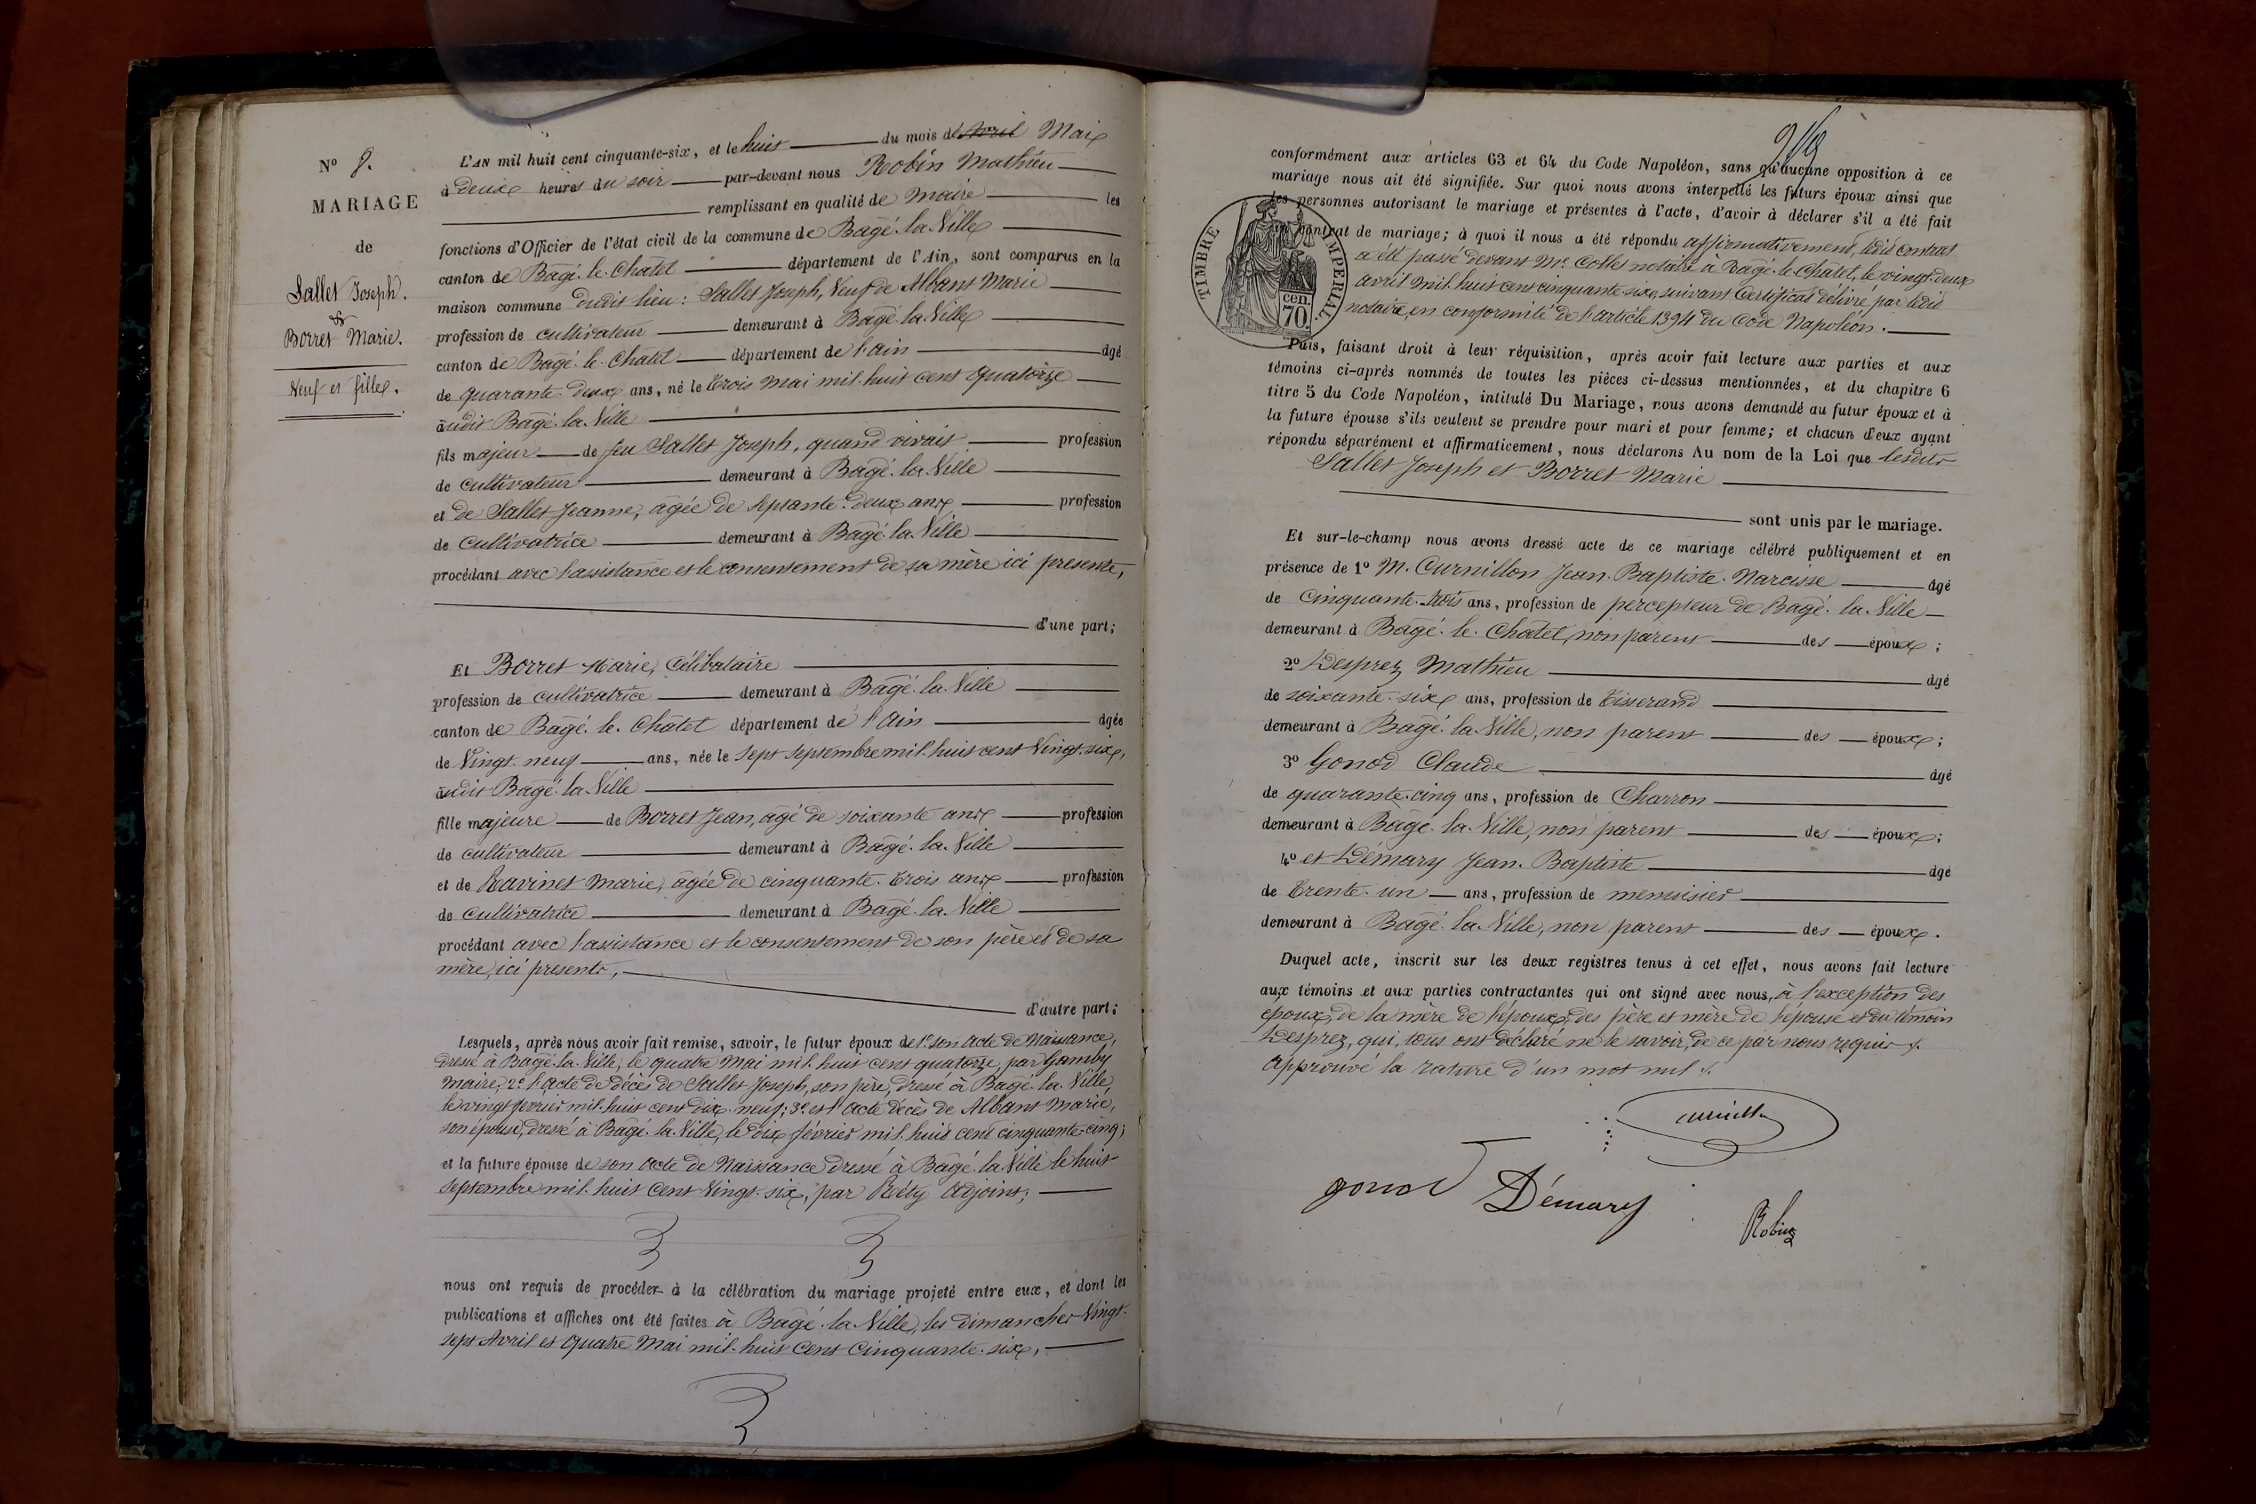 N° 8.
MARIAGE
de
Sallet Joseph.
&
Borret Marie.
Veuf et fille.
L'AN mil huit cent cinquante-six, et le huit du mois de Avril Mai
à deux heures du soir par-devant nous Robin Mathieu
remplissant en qualité de Maire les
fonctions d'Officier de l'état civil de la commune de Bagé-la-Ville
canton de Bagé-le-Châtel département de l'Ain, sont comparus en la
maison commune dudit lieu : Sallet Joseph, Veuf de Albans Marie
profession de cultivateur demeurant à Bagé-la-Ville
canton de Bagé-le-Châtel département de l'ain âgé
de quarante-deux ans, né le trois Mai mil-huit cent quatorze
audit Bagé-la-Ville
fils majeur de feu Sallet Joseph, quand vivait profession
de cultivateur demeurant à Bagé-la-Ville
et de Sallet Jeanne, âgée de septante-deux ans profession
de cultivatrice demeurant à Bagé-la-Ville
procédant avec l'assistance et le consentement de sa mère ici présente,
d'une part;
Et Borret Marie, Célibataire
profession de cultivatrice demeurant à Bagé-la-Ville
canton de Bagé-le-Châtel département de l'ain âgée
de Vingt-neuf ans, née le sept septembre mil-huit cent Vingt-six,
audit Bagé-la-Ville
fille majeure de Borret Jean, âgé de soixante ans profession
de cultivateur demeurant à Bagé-la-Ville
et de Ravinet Marie, âgée de cinquante-trois ans profession
de cultivatrice demeurant à Bagé-la-Ville
procédant avec l'assistance et le consentement de son père et de sa
mère, ici présents,
d'autre part;
Lesquels, après nous avoir fait remise, savoir, le futur époux de 1° son acte de Naissance,
dressé à Bagé-la-Ville, le quatre Mai mil-huit cent quatorze, par Gamby
maire, 2° l'acte de décès de Sallet Joseph, son père, dressé à Bagé-la-Ville
le vingt février mil-huit cent dix-neuf; 3° et l'acte décès de Albans Marie,
son épouse, dressé à Bagé-la-Ville, le dix février mil-huit cent cinquante-cinq;
et la future épouse de son acte de Naissance dressé à Bagé-la-Ville le huit
septembre mil-huit cent Vingt-six, par Réty Adjoint;
nous ont requis de procéder à la célébration du mariage projeté entre eux, et dont les
publications et affiches ont été faites à Bagé-la-Ville, les dimanches Vingt-
sept Avril et quatre Mai mil-huit cent cinquante-six,
conformément aux articles 63 et 64 du Code Napoléon, sans qu'aucune opposition à ce
mariage nous ait été signifiée. Sur quoi nous avons interpellé les futurs époux ainsi que
les personnes autorisant le mariage et présentes à l'acte, d'avoir à déclarer s'il a été fait
contrat de mariage; à quoi il nous a été répondu affirmativement, ledit contrat
a été passé devant Me. Collet notaire à Bagé-le-Châtel, le vingt-deux
avril mil-huit cent cinquante-six, suivant Certificat délivré par ledit
notaire, en conformité de l'article 1394 du Code Napoléon.
TIMBRE IMPERIAL
70. cen.
Puis, faisant droit à leur réquisition, après avoir fait lecture aux parties et aux
témoins ci-après nommés de toutes les pièces ci-dessus mentionnées, et du chapitre 6
titre 5 du Code Napoléon, intitulé Du Mariage, nous avons demandé au futur époux et à
la future épouse s'ils veulent se prendre pour mari et pour femme; et chacun d'eux ayant
répondu séparément et affirmaticement, nous déclarons Au nom de la Loi que lesdits
Sallet Joseph et Borret Marie
sont unis par le mariage.
Et sur-le-champ nous avons dressé acte de ce mariage célébré publiquement et en
présence de 1° M. Curnillon Jean-Baptiste-Narcisse âgé
de Cinquante-trois ans, profession de percepteur de Bagé-la-Ville
demeurant à Bagé-le-Châtel, non parent des époux ;
2° Desprez Mathieu âgé
de soixante-six ans, profession de Tisserand
demeurant à Bagé-la-Ville, non parent des époux ;
3° Gonod Claude âgé
de quarante-cinq ans, profession de Charron
demeurant à Bagé-la-Ville, non parent des époux ;
4° et Démary Jean-Baptiste âgé
de trente-un ans, profession de menuisier
demeurant à Bagé-la-Ville, non parent des époux.
Duquel acte, inscrit sur les deux registres tenus à cet effet, nous avons fait lecture
aux témoins et aux parties contractantes qui ont signé avec nous, à l'exception des
époux, de la mère de l'époux, des père et mère de l'épouse et du témoin
Desprez, qui, tous ont déclaré ne le savoir, de ce par nous requis.
Approuvé la rature d'un mot nul.
gonod
Démary
Robin